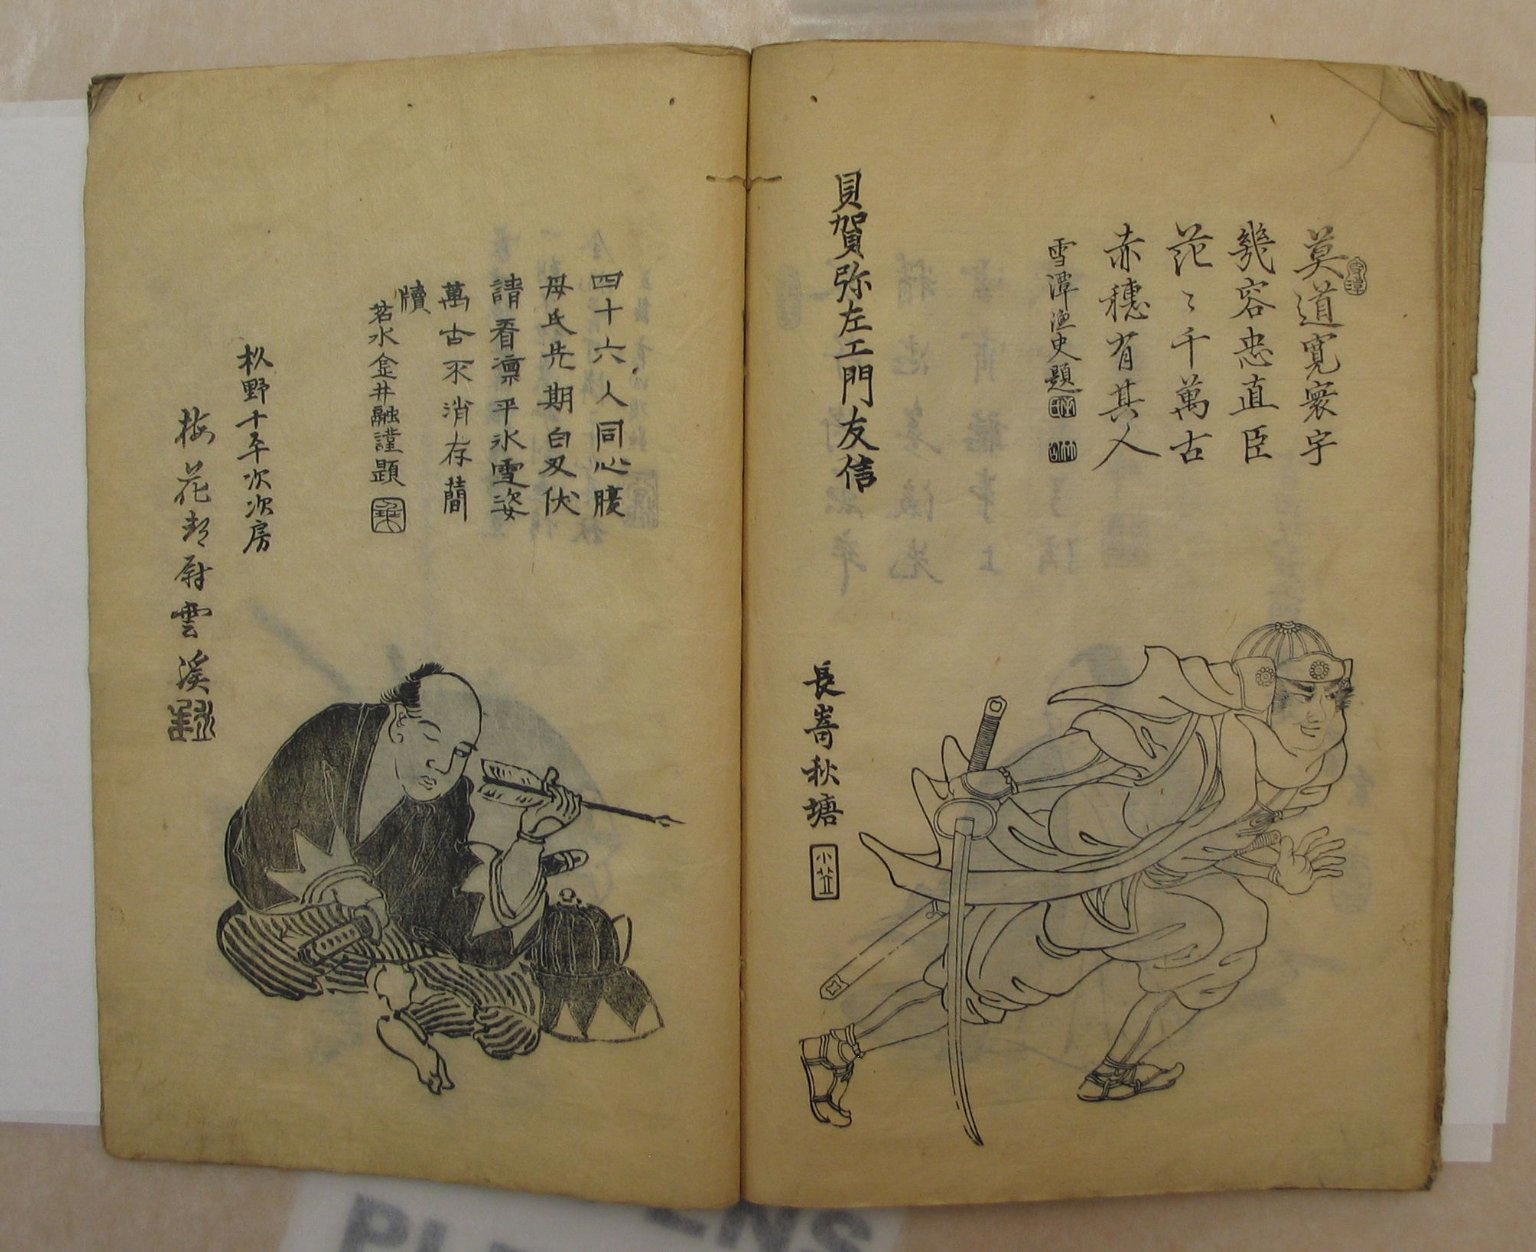 莫道寛裘宇
幾容忠直臣
茫〻千萬古
赤穗有其人
雪潭漁史題
貝賀弥左エ門友信
長嵜秋塘
四十六人同心腹
母氏先期白刄伏
請看凛乎氷雪姿
萬古不消存蕳
牘
若水金井融謹題
杦野十平次次房
梅花
雲溪